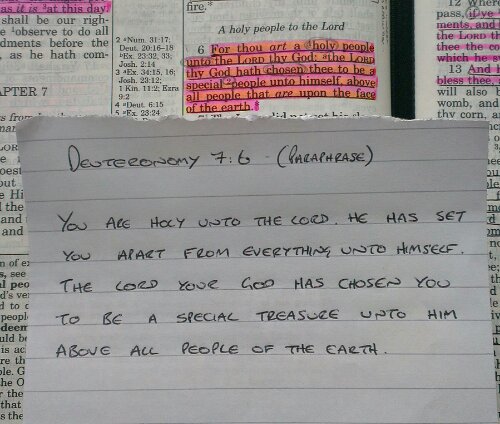 as it is ᵃat this day.
shall be our righ-
ᵃobserve to do all
before the
, as he hath com-
APTER 7
ᵃNum. 31:17;
Deut. 20:16–18
ᵃEx. 23:32, 33;
Josh. 2:14
ᵃEx. 34:15, 16;
Josh. 23:12;
1 Kin. 11:2; Ezra
9:2
ᵃDeut. 6:15
ᵃEx. 23:24
fire."
A holy people to the Lord
6 For thou art a ᵃholy people
unto the LORD thy God: ᵃthe LORD
thy God hath chosen thee to be a
special people unto himself, above
all people that are upon the face
of the earth.
12 Where
pass, if ye
ments, and
the LORD th
thee the
which he sw
13 And
bless thee,
will also b
womb, and
thy corn, a
DEUTERONOMY 7:6 (PARAPHRASE)
YOU ARE HOLY UNTO THE LORD. HE HAS SET
YOU APART FROM EVERYTHING UNTO HIMSELF.
THE LORD YOUR GOD HAS CHOSEN YOU
TO BE A SPECIAL TREASURE UNTO HIM
ABOVE ALL PEOPLE OF THE EARTH.